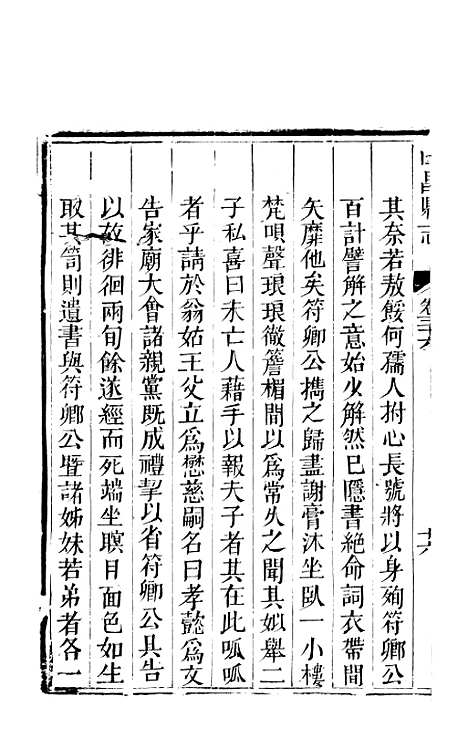 昌縣志
卷三十六
其奈若敖餒何孺人拊心長號將以身殉符卿公
百計譬解之意始少解然已隱書絶命詞衣帶間
矢靡他矣符卿公攜之歸盡謝膏沐坐臥一小樓
梵唄聲琅琅徹簷楣間以爲常久之聞其姒舉二
子私喜曰未亡人藉手以報夫子者其在此呱呱
者乎請於翁姑王父立爲懋慈嗣名曰孝懿爲文
告家廟大會諸親黨既成禮挈以省符卿公具告
以故徘徊兩旬餘遂經而死端坐瞑目面色如生
取其笥則遺書與符卿公暨諸姊妹若弟者各一